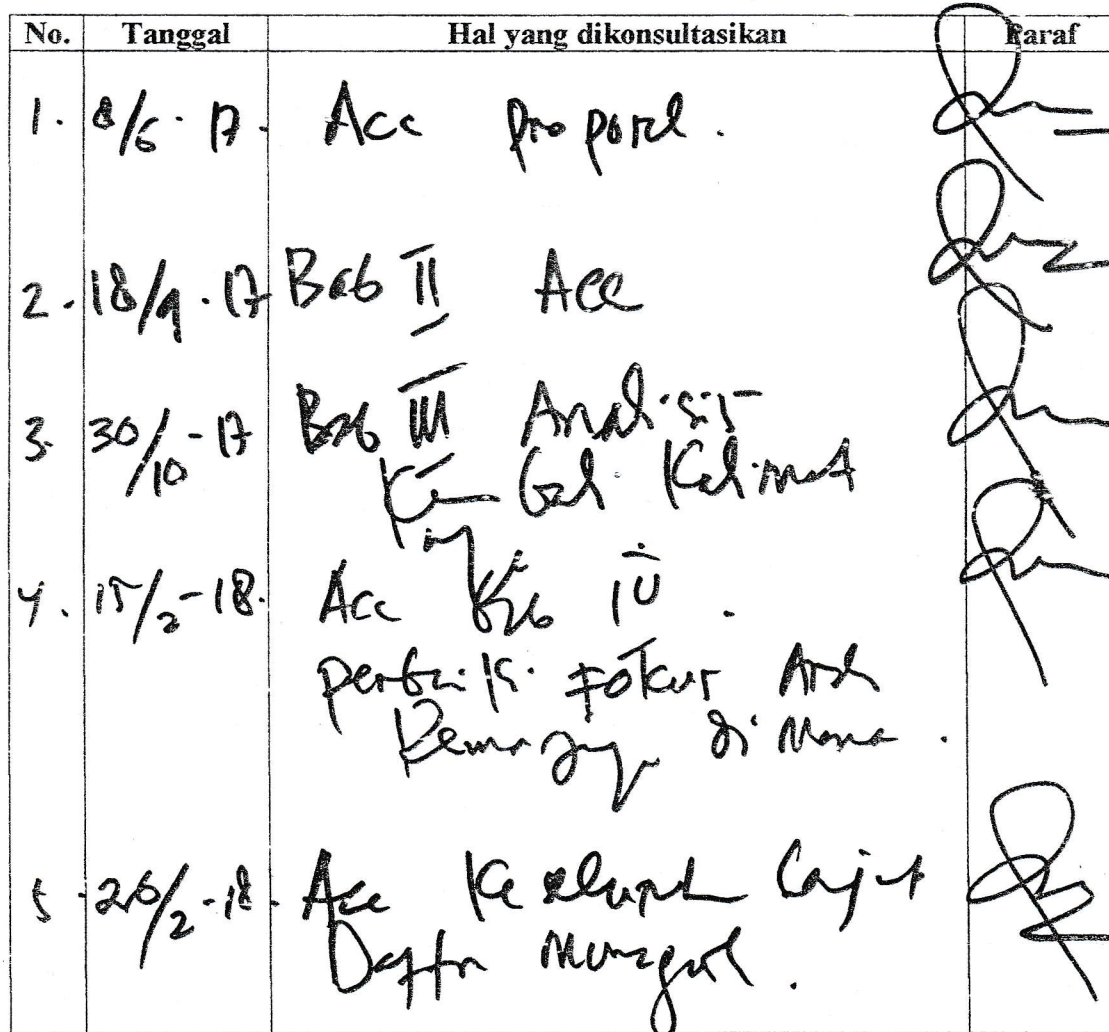 No. Tanggal Hal yang dikonsultasikan Paraf
1. 8/6-17. Acc proposal.
2. 18/9-17 Bab II Acc
3. 30/10-17 Bab III Analisis
Kalimat
4. 15/2-18. Acc Bab IV.
perbaiki Fokus
di Mana.
5. 26/2-18. Acc Keseluruhan Lanjut
Daftar Munaqosah.